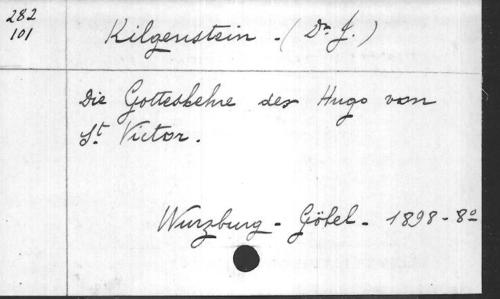 282
101
Kilgenstein - (Dr J.)
Die Gotteslehre des Hugo von
St Victor.
Wurzburg - Göbel - 1898 - 8o